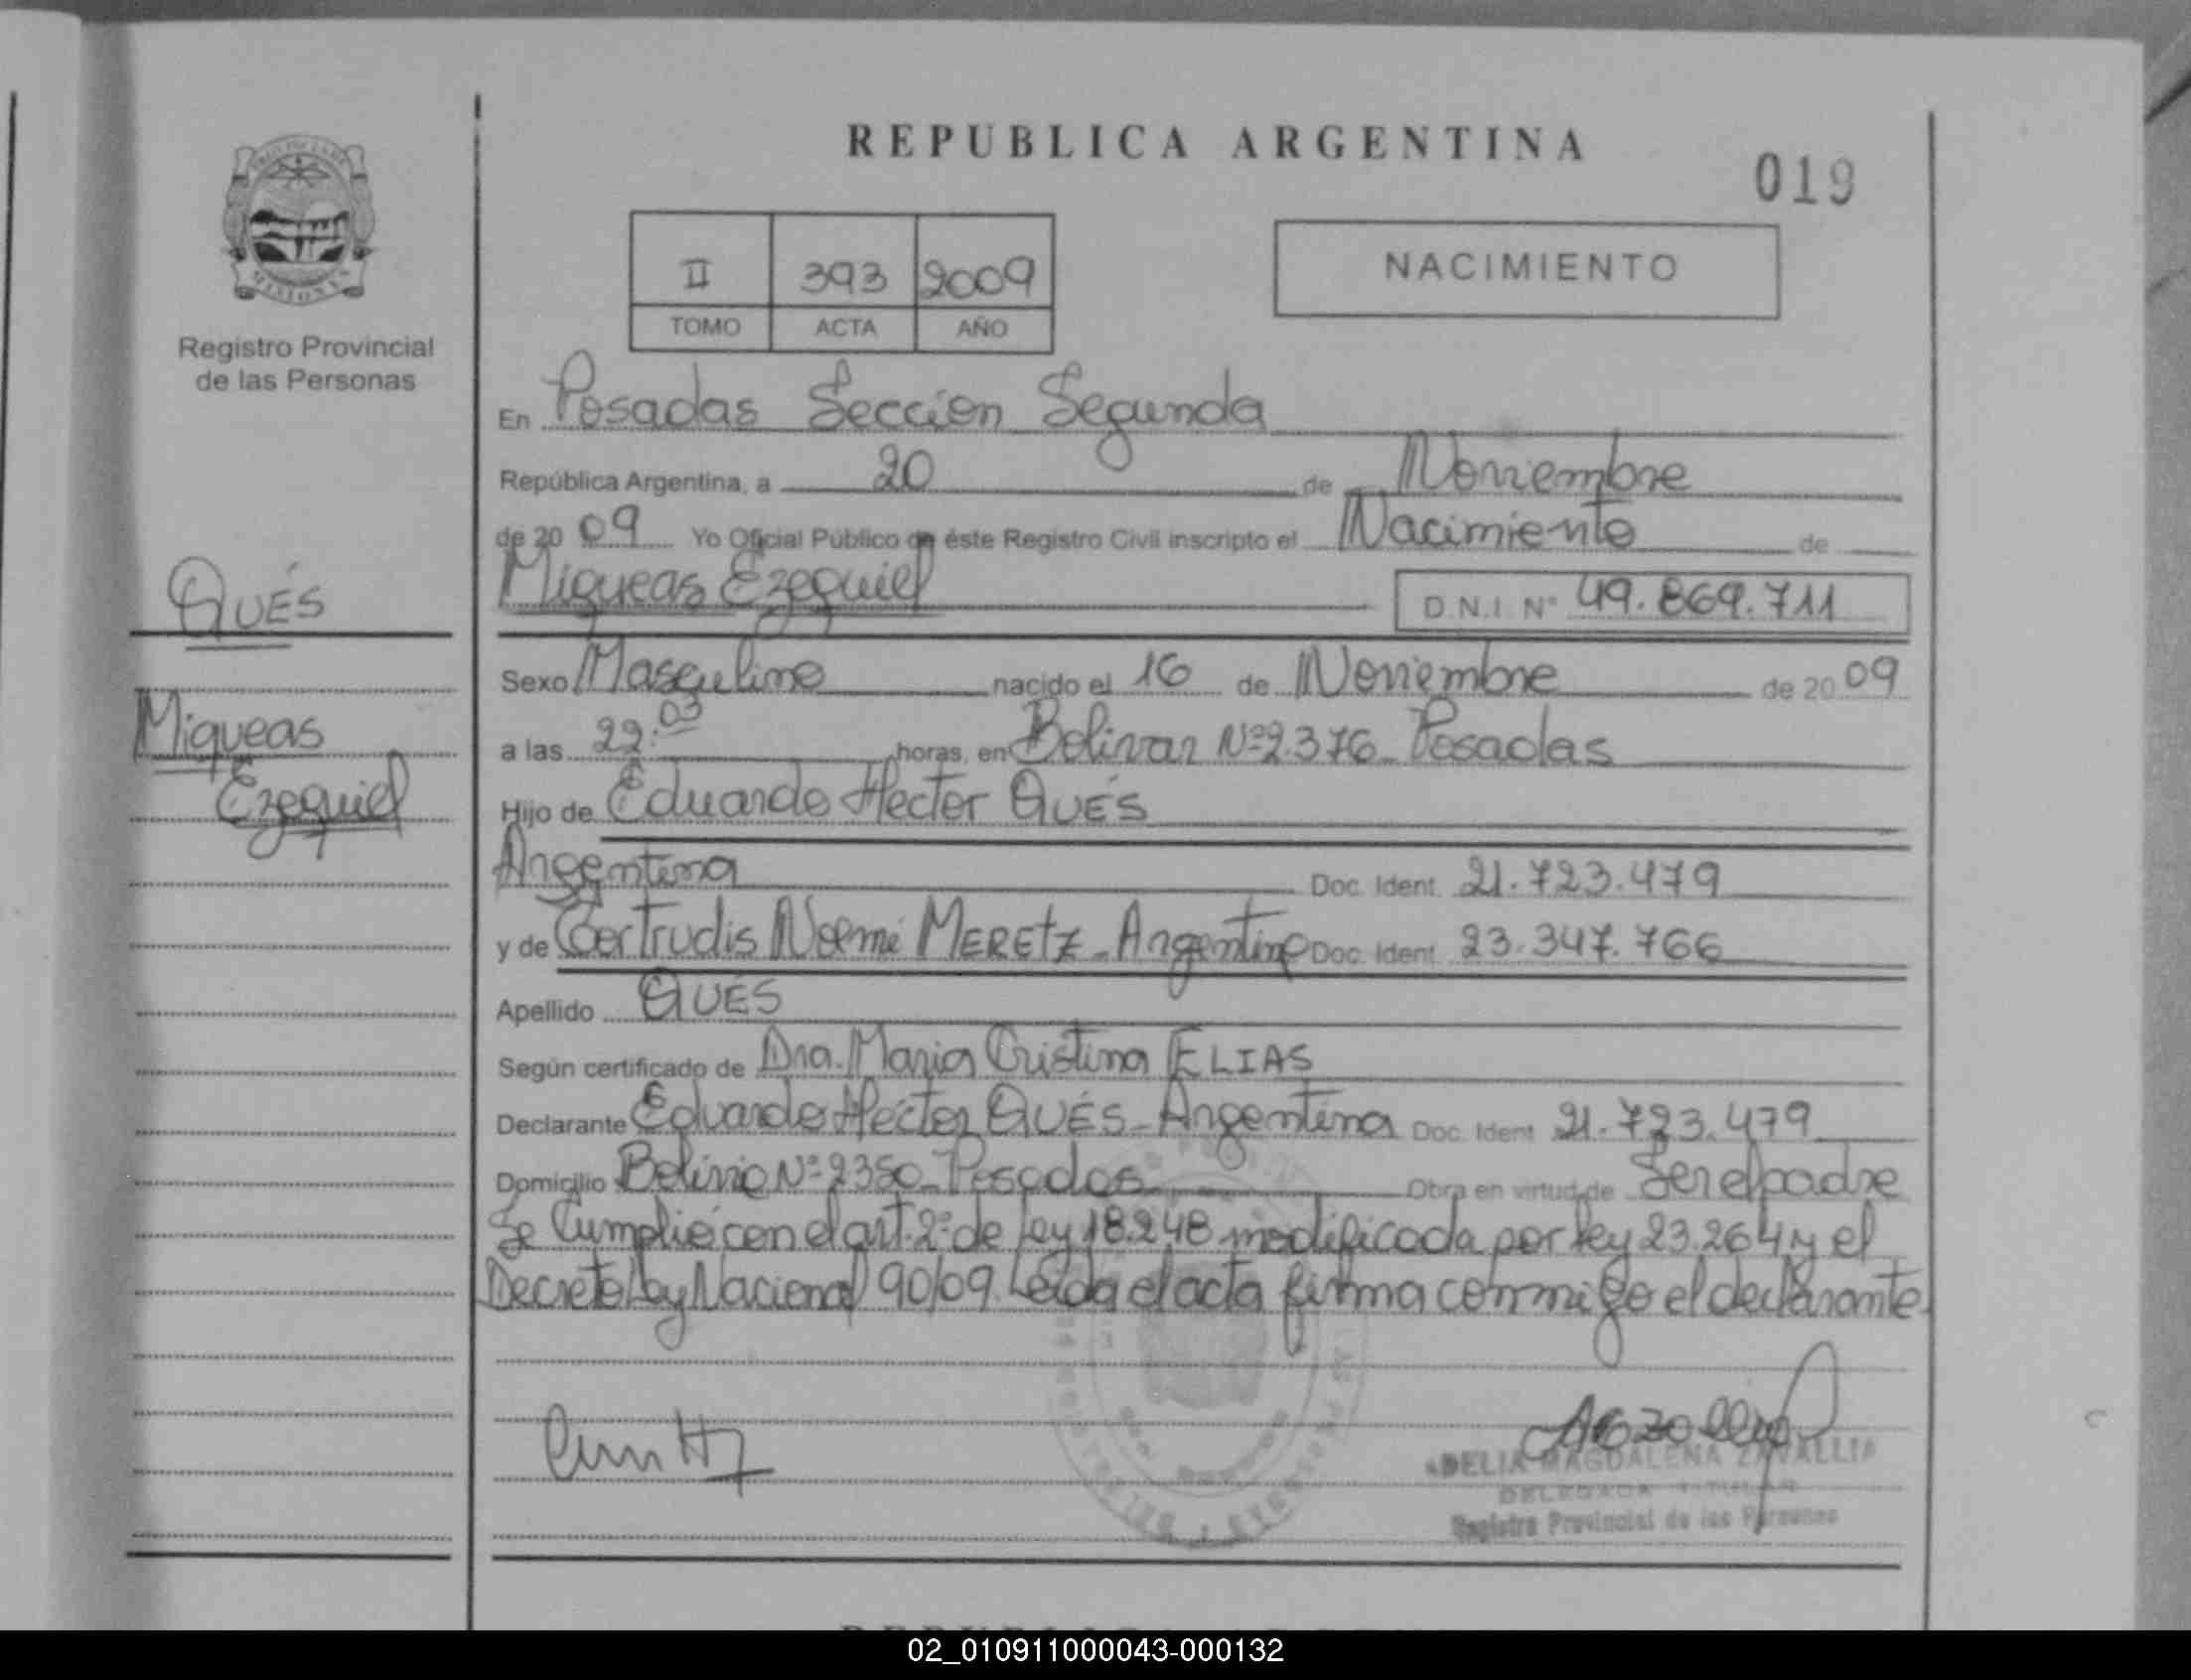 REPUBLICA ARGENTINA
019
II 393 2009
TOMO ACTA AÑO
NACIMIENTO
MISIONES
Registro Provincial
de las Personas
En Posadas Sección Segunda
República Argentina, a 20 de Noviembre
de 20 09 Yo Oficial Público de éste Registro Civil inscripto el Nacimiento de
Miqueas Ezequiel D.N.I. N° 49.869.711
QUÉS
Miqueas
Ezequiel
Sexo Masculino nacido el 16 de Noviembre de 20 09
a las 22:03 horas, en Bolivar Nº 2.376 Posadas
Hijo de Eduardo Hector QUÉS
Argentina Doc. Ident. 21.723.479
y de Gertrudis Noemi MERETZ - Argentina Doc. Ident. 23.347.766
Apellido QUÉS
Según certificado de Dra. Maria Cristina ELIAS
Declarante Eduardo Héctor QUÉS - Argentina Doc. Ident. 21.723.479
Domicilio Bolivia Nº 2350 - Posadas Obra en virtud de Ser el padre
Se Cumplió con el art. 2º de ley 18.248 modificada por ley 23.264 y el
Decreto Ley Nacional 90/09. Leída el acta firma conmigo el declarante.
DELIA MAGDALENA ZAVALLIA
DELEGADA TITULAR
Registro Provincial de las Personas
02_010911000043-000132